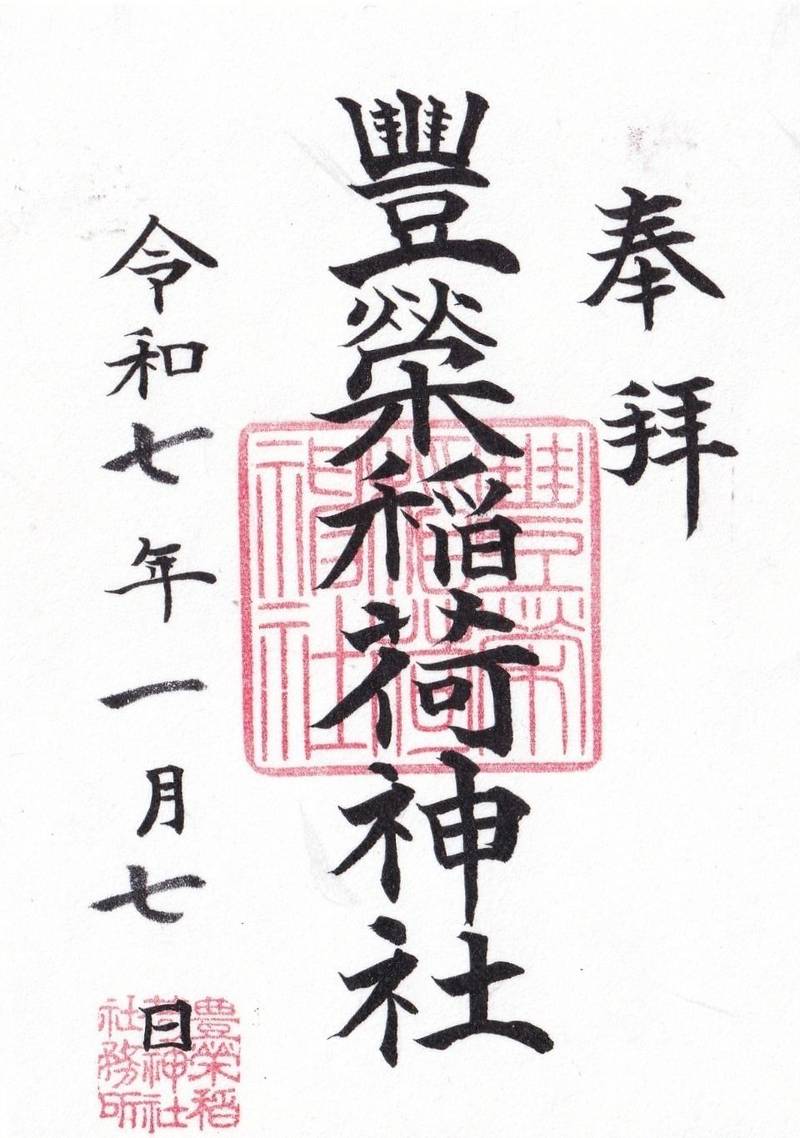 奉拝
豐榮稲荷神社
豐榮稲荷神社
令和七年一月七日
豊榮稲荷神社社務所